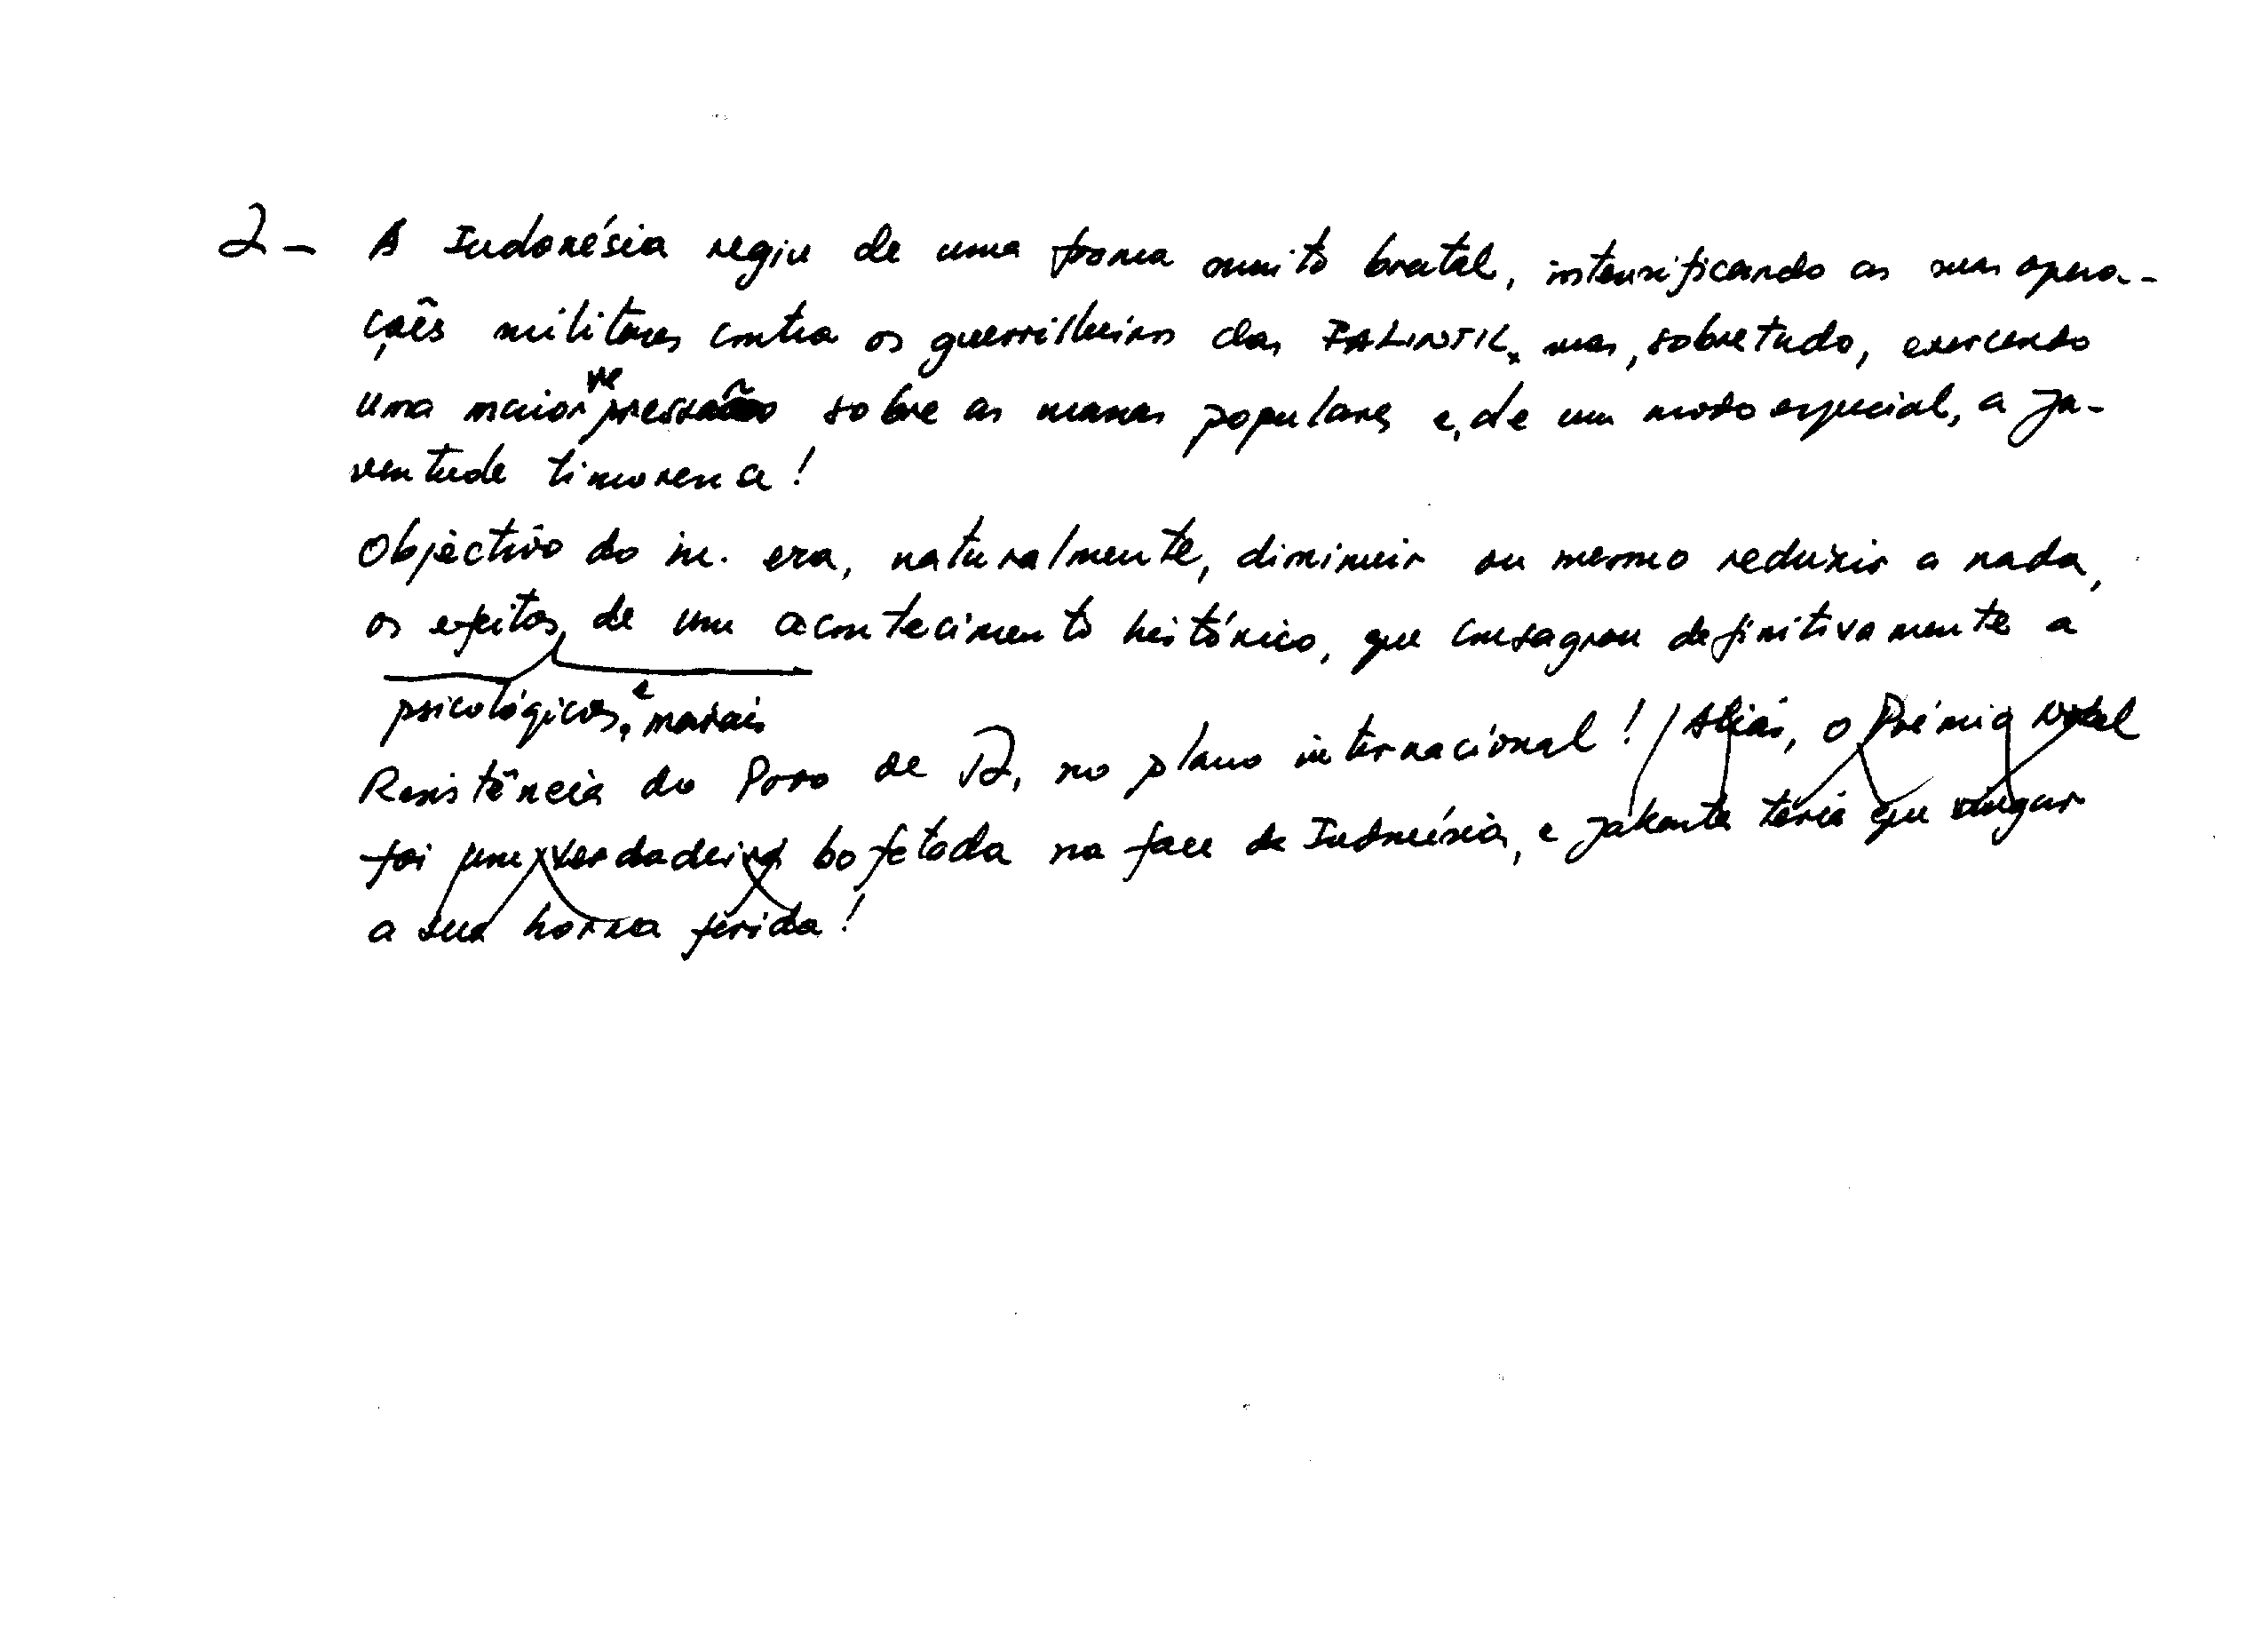 2 - A Indonésia regiu de uma forma muito brutal, intensificando as suas opera-
ções militares contra os guerrilheiros das FALINTIL, mas, sobretudo, exercendo
uma maior repressão sobre as massas populares e, de um modo especial, a ju-
ventude timorense!
Objectivo do in. era, naturalmente, diminuir ou mesmo reduzir a nada,
os efeitos, de um acontecimento histórico, que consagrou definitivamente a
psicológicos e morais
Resistência do Povo de TL, no plano internacional! Aliás, o Prémio Nobel
foi uma verdadeira bofetada na face da Indonésia, e Jakarta teria que vingar
a sua honra ferida!